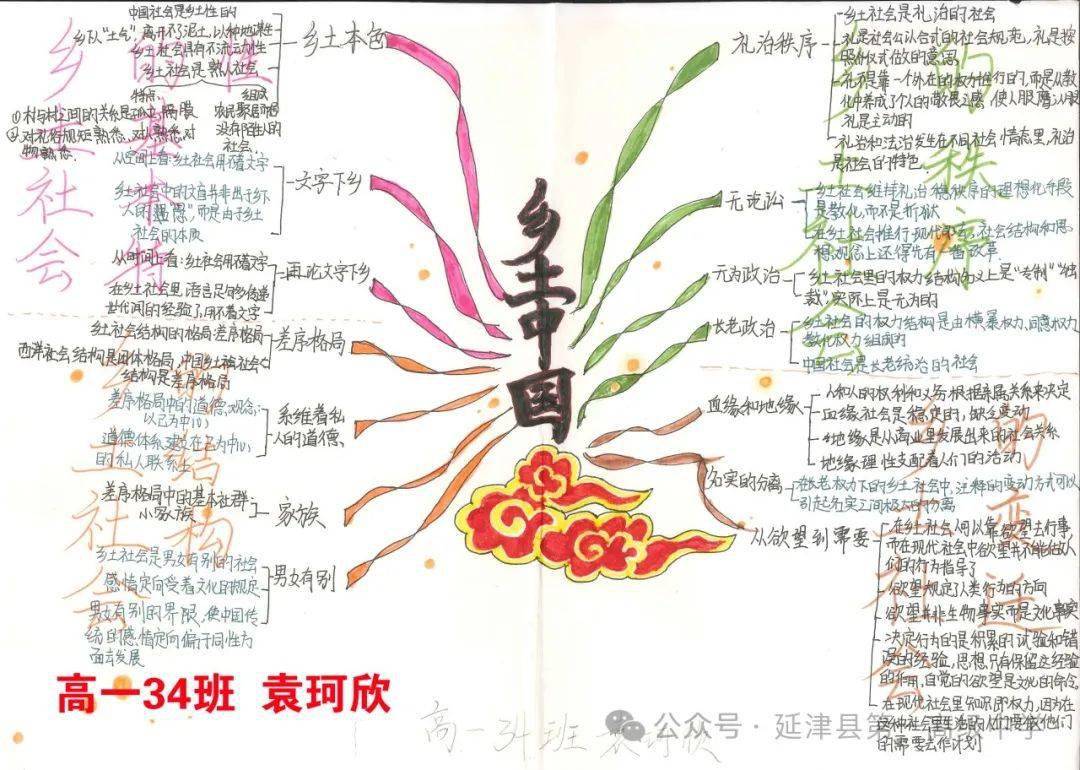 乡土中国
乡土社会
的基本特
乡土本色
中国社会是乡土性的
乡下人"土气",离开不了泥土,以种地谋生
乡土社会具有不流动性
乡土社会是熟人社会
特点、
组成
①村与村之间的关系是孤立、隔膜
②对礼俗规矩熟悉、对人熟悉、对
物熟悉.
农民聚居而居
没有陌生人的
社会.
文字下乡
从空间上看:乡土社会用不着文字
乡土社会中的文盲并非出于乡下
人的"愚",而是由于乡土
社会的本质
再论文字下乡
从时间上看:乡土社会用不着文字
在乡土社会里,语言足够传递
世代间的经验了,用不着文字
差序格局
乡土社会结构的格局:差序格局
西洋社会结构是团体格局,中国乡土社会
结构是差序格局
系维着私
人的道德、
差序格局中的道德观念:
以己为中心
道德体系建在己为中心
的私人联系上
家族
差序格局中的基本社群:
小家族
男女有别
乡土社会是男女有别的社会
感情定向受着文化的规定
男女有别的界限,使中国传
统的感情定向偏于同性方
面去发展
结构
礼治秩序
乡土社会是礼治的社会
礼是社会公认合式的社会规范,礼是按
照仪式做的意思
礼不是靠一个外在的权力推行的,而是从教
化中养成了个人的敬畏之感,使人服膺,人服
礼是主动的
礼治和法治发生在不同社会情态里,礼治
是社会的特色
的秩序
无讼
乡土社会维持礼治秩序的理想化手段
是教化,而不是折狱
在乡土社会推行现代,社会结构和思
想观念上还得先有一番改革.
无为政治
乡土社会里的权力结构名义上是"专制""独
裁",实际上是无为的
长老政治
乡土社会的权力结构是由横暴权力、同意权力
教化权力组成的
中国社会是长老统治的社会
血缘和地缘
人和人的权利和义务根据亲属关系来决定
血缘社会是稳定的,缺乏变动
地缘是从商业里发展出来的社会关系
地缘:理性支配着人们的活动
名实的分离
在长老权力下的乡土社会中,注释的变动方式可以
引起名实之间极大的分离
从欲望到需要
在乡土社会人可以靠欲望去行事,
而在现代社会中欲望并不能做人
们的行为指导了
欲望规定了人类行为的方向
欲望并非生物事实而是文化事实
决定行为的是积累的试验和错
误的经验,思想只有保留这经验
的作用,自觉的欲望是文化的命令
在现代社会里知识即权力,因为在
这种社会里生活的人们要依他们
的需要去作计划
的变迁
高一34班 袁珂欣
高一34班 袁珂欣
公众号·延津县第一高级中学